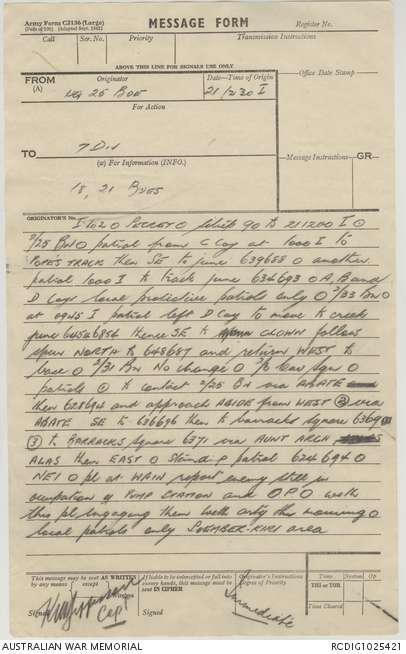 Army Form C2136 (Large)
MESSAGE FORM
Register No.
(Pads of 100) (Adapted Sept. 1942)
Call
Ser. No.
Priority
Transmission Instructions
ABOVE THIS LINE FOR SIGNALS USE ONLY
Office Date Stamp
FROM
(A)
Originator
Date—Time of Origin
HQ 25 BDE
21/1230 I
For Action
TO
7 DIV
(W) For Information (INFO.)
Message Instructions
GR
18, 21 BDES
ORIGINATOR'S No.
SECRET O Sitrep 90 to 211200 I O
2/25 BN O patrol from C Coy at 1000 I to
POPE'S TRACK then SE to junc 639688 O another
patrol 1000 I to track junc 634693 O A, B and
D Coys local protective patrols only O 2/33 BN O
at 0945 I patrol left D Coy to move to creek
junc 64546856 thence SE to CLOWN follow
spur NORTH to 648687 and return WEST to
base O 2/31 BN No change O
patrols ① to contact 2/25 BN via ABATE
then 628694 and approach ABIDE from WEST ② via
ABATE SE to 636696 then to barracks square
③ to BARRACKS square 6371 via AUNT ARCH
ALAS then EAST O Standing patrol 624694 O
pl at WAIN report enemy still in
occupation of PUMP STATION and O.P O
this pl engaging them with arty this morning O
local patrols only area
This message may be sent AS WRITTEN
by any means
If liable to be intercepted or fall into
enemy hands, this message must be
sent IN CIPHER
Originator's Instructions
Degree of Priority
Time
System
Time Cleared
Capt
Signed
Signed
Immediate
AUSTRALIAN WAR MEMORIAL
RCDIG1025421